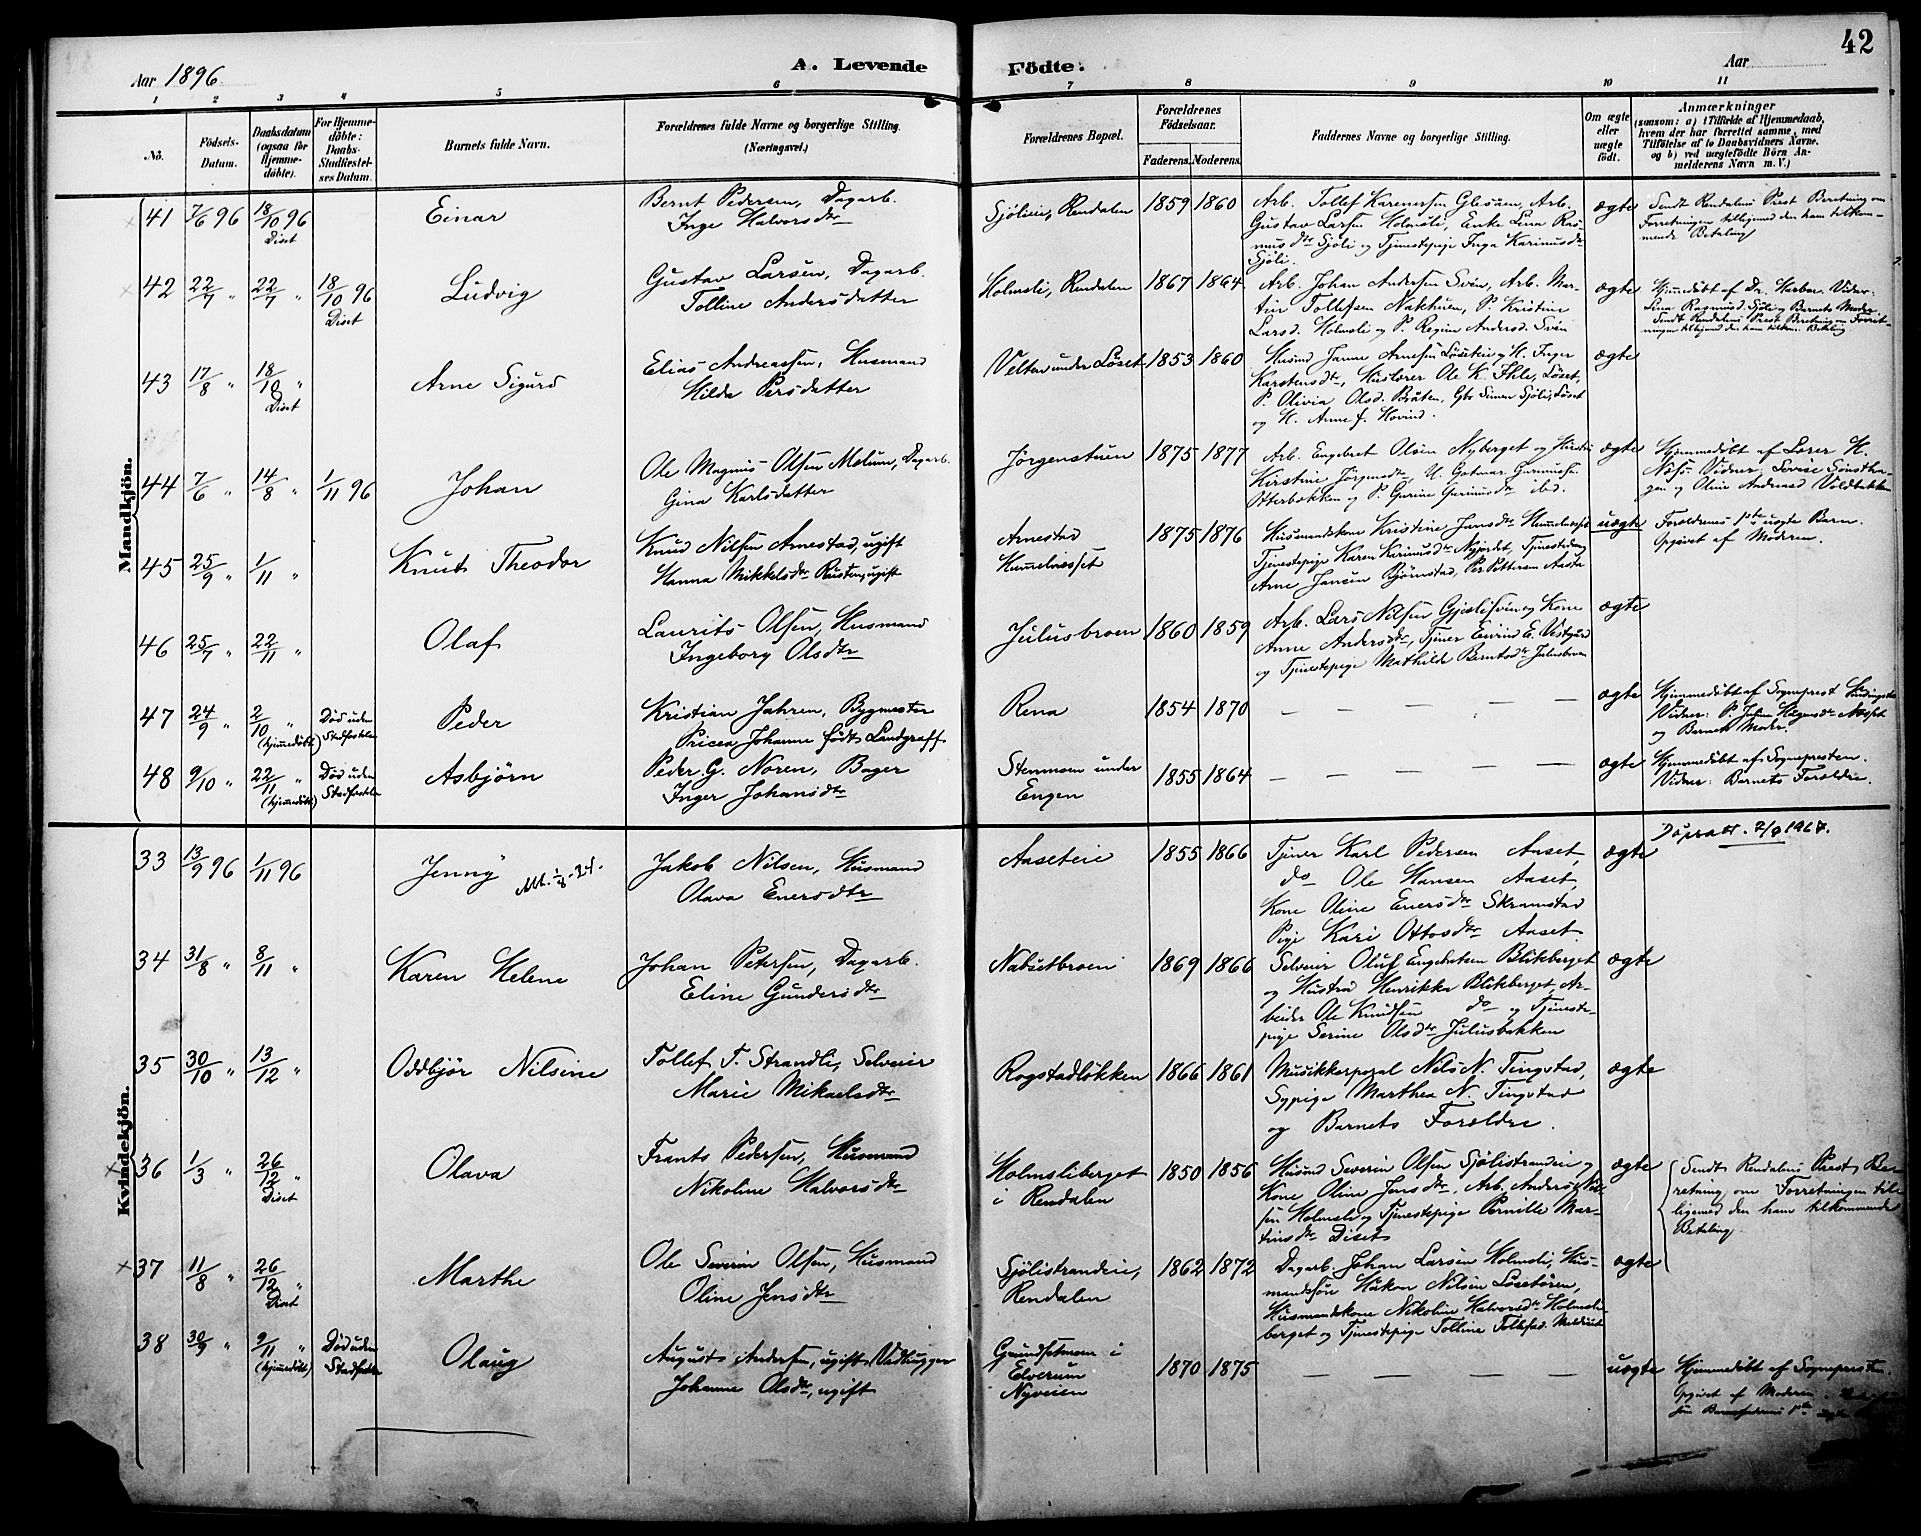 42
Aar 1896
A. Levende
Födte.
Aar
1 2 3 4 5 6 7 8 9 10 11
No.
Födsels-
Datum.
Daabsdatum
(ogsaa for
Hjemme-
döbte).
For Hjemme-
döbte:
Daabs-
Stadfæstel-
ses Datum.
Barnets fulde Navn.
Forældrenes fulde Navne og borgerlige Stilling.
(Næringsvei.)
Forældrenes Bopæl.
Forældrenes
Födselsaar.
Faderens. Moderens.
Faddernes Navne og borgerlige Stilling.
Om ægte
eller
uægte
födt.
Anmærkninger
(saasom: a) i Tilfælde af Hjemmedaab,
hvem der har forrettet samme, med
Tilföielse af to Daabsvidners Navne.
og b) ved uægtefödte Börn An-
melderens Navn m. V.)
Mandkjön.
41 7/6 96 18/10 96 Diset
Einar
Bernt Pedersen, Dagarb.
Inge Halvorsdtr
Sjöliei, Rendalen 1859 1860
Gustav Larsen Holmsli, Enke Lina Ras-
musdtr Sjöli og Tjenestepige Inga Karinusdtr
Sjöli.
ægte
Sendt Rendalens Prest Beretning om
Forretningen tilligemed den ham tilkom-
mende Betaling
42 22/7 " 22/7 " 18/10 96 Diset
Ludvig
Gustav Larsen, Dagarb.
Tolline Andersdatter
Holmsli, Rendalen 1867 1864
Arb. Johan Andersen Svén, Arb. Mar-
tin Tollefsen Nakhuen, P. Kristine
Larsd. Holmsli og P. Regine Andersd. Svén
ægte
Lina Rasmusd. Sjöli og Barnets Moder
43 17/8 " 18/10 " Diset
Arne Sigurd
Elias Andreassen, Husmand
Hilda Persdatter
Velten under Löset 1853 1860
Karstensdtr, Huslærer Ole K. Ihle, Löset,
P. Olivia Olsd. Bråten, Gbr Simen Sjöli, Löset
ægte
44 7/6 " 14/8 " 1/11 96
Johan
Ole Magnus Olsen Melum, Dagarb.
Gina Karlsdatter
Jörgenstuen 1875 1877
Arb. Engebret Olsen Nyberget og Hustru
Otterbækken og P. Gurine Gurinusdtr ibd.
ægte
Hjemmedöbt af Lærer H.
45 25/9 " 1/11 "
Knut Theodor
Knud Nilsen Arnestad, ugift
Hanna Mikkelsdtr Rusten, ugift
Arnestad
Hummelnesset
1875 1876
Husmandskone Kristine Jensdtr Hummelnesset
Tjenestepige Karen Karinusdtr Nyjordet, Tjenestedreng
Arne Jansen Björnstad, Per Pettersen Aasta
uægte
Forældrenes 1ste uægte Barn.
Opgivet af Moderen.
46 25/7 " 22/11 "
Olaf
Laurits Olsen, Husmand
Ingeborg Olsdtr
Julusbroen 1860 1859
og Tjenestepige Mathilde Berntsdtr Julusbroen
ægte
47 24/9 " 2/10 " (hjemmedöbt)
Död uden
Stadfæstelse
Peder
Kristian Jahren, Bygmester
Pricea Johanne födt Landgraff
Rena 1854 1870
— — — — —
ægte
og Barnets Moder.
48 9/10 " 22/11 " (hjemmedöbt)
Död uden
Stadfæstelse
Asbjörn
Peder G. Noren, Bager
Inger Johansdtr
Stenmoen under
Engen
1855 1864
— — — — —
ægte
Hjemmedöbt af Sognepresten.
Vidner: Barnets Forældre.
Kvindekjön.
33 13/9 96 1/11 96
Jenny
Jakob Nilsen, Husmand
Olava Enersdtr
Aaseteie 1855 1866
Tjener Karl Pedersen Aaset,
do Ole Hansen Aaset,
Kone Oline Enersdtr Skramstad
Pige Kari Ottosdtr Aaset.
ægte
Döpsatt. 7/9 1967.
34 31/8 " 8/11 "
Karen Helene
Johan Petersen, Dagarb.
Eline Gundersdtr
Nabsetbroen 1869 1866
Selveier Oluf Engebretsen Blikberget
og Hustru Henrikka Blikberget, Ar-
beider Ole Knudsen do og Tjeneste-
pige Serine Olsdtr Julusbakken
ægte
35 30/10 " 13/12 "
Oddbjör Nilsine
Tollef T. Strandli, Selveier
Marie Mikaelsdtr
Rogstadlökken 1866 1861
Musikkorporal Nils N. Tingstad,
Sypige Marthea N. Tingstad
og Barnets Forældre.
ægte
36 1/3 " 26/12 " Diset
Olava
Frants Pedersen, Husmand
Nikoline Halvorsdtr
Holmsliberget
i Rendalen
1850 1856
Husmd Severin Olsen Sjölistrandeie og
Kone Oline Jensdtr, Arb. Anders Niel-
sen Holmsli og Tjenestepige Pernille Mar-
tinsdtr Diset
ægte
Sendt Rendalens Prest Be-
retning om Forretningen til-
ligemed den ham tilkommende
Betaling.
37 11/8 " 26/12 " Diset
Marthe
Ole Severin Olsen, Husmand
Oline Jensdtr
Sjölistrandeie,
Rendalen
1862 1872
Dagarb. Johan Larsen Holmsli, Hus-
mandssön Håkon Nilsen Lösetåen,
Husmandskone Nikoline Halvorsdtr Holmsli-
berget og Tjenestepige Tolline Tollefsd.
ægte
38 30/9 " 9/11 " (hjemmedöbt)
Död uden
Stadfæstelse
Olaug
August Andersen, ugift Vedhugger
Johanne Olsdtr, ugift
Grundsetmoen i
Elverum
Nyveien
1870 1875
— — — — —
uægte
Hjemmedöbt af Sognepresten.
Opgivet af Moderen.